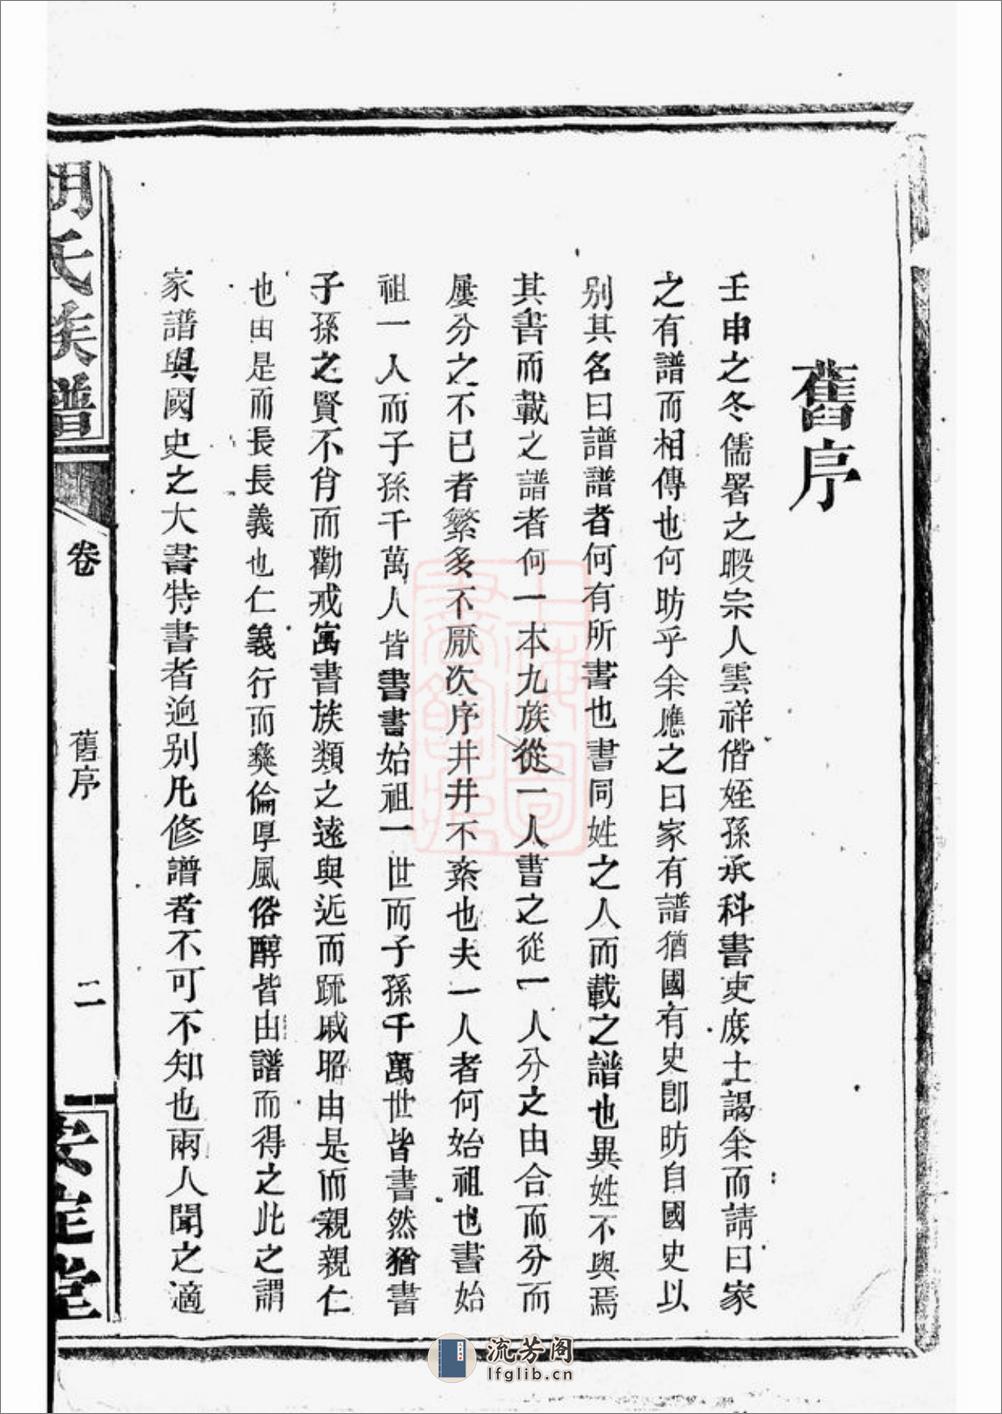 舊序
壬申之冬儒署之暇宗人雲祥偕姪孫承科書吏庻士謁余而請曰家
之有譜而相傳也何昉乎余應之曰家有譜猶國有史卽昉自國史以
别其名曰譜譜者何有所書也書同姓之人而載之譜也異姓不與焉
其書而載之譜者何一本九族從一人書之從一人分之由合而分而
屢分之不已者繁多不厭次序井井不紊也夫一人者何始祖也書始
祖一人而子孫千萬人皆書書始祖一世而子孫千萬世皆書然猶書
子孫之賢不肖而勸戒寓書族類之遠與近而踈戚昭由是而親親仁
也由是而長長義也仁義行而彜倫厚風俗醇皆由譜而得之此之謂
家譜與國史之大書特書者逈别凡修譜者不可不知也兩人聞之適
胡氏族譜
卷
舊序
二
安定堂
流芳阁
lfglib.cn